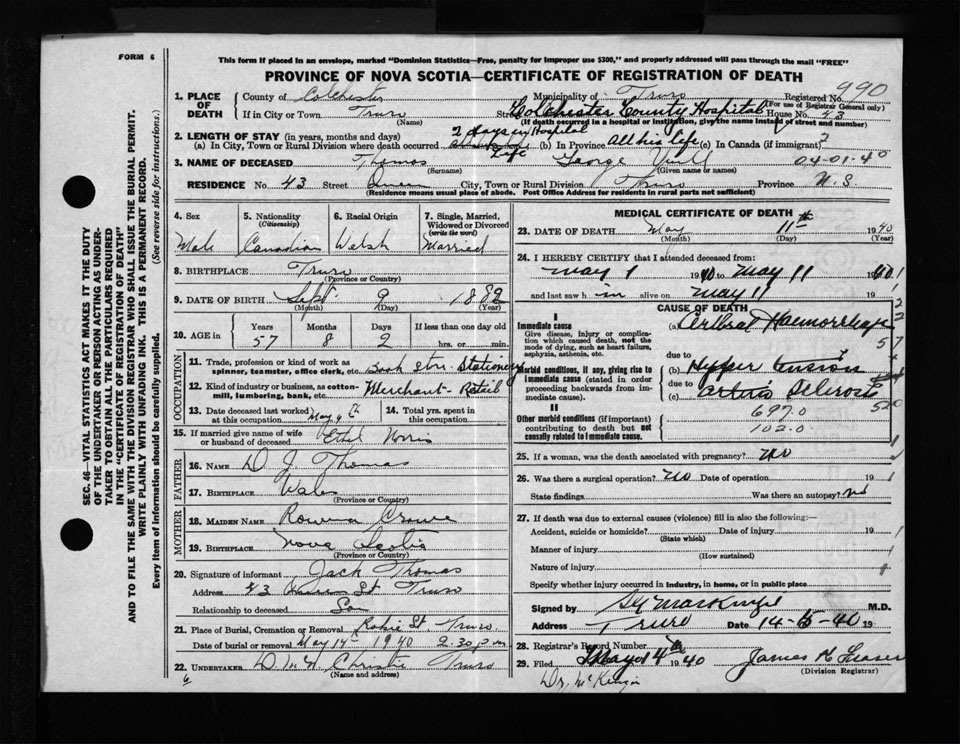 FORM 6
This form if placed in an envelope, marked "Dominion Statistics—Free, penalty for improper use $300," and properly addressed will pass through the mail "FREE"
PROVINCE OF NOVA SCOTIA—CERTIFICATE OF REGISTRATION OF DEATH
Registered No. 990
(For use of Registrar General only)
1. PLACE OF DEATH County of Colchester Municipality of Truro
If in City or Town Truro Street Colchester County Hospital House No. 43
(Name) (If death occurred in a hospital or institution, give the name instead of street and number)
2. LENGTH OF STAY (in years, months and days) 2 days in Hospital
(a) In City, Town or Rural Division where death occurred Life (b) In Province All his life (c) In Canada (if immigrant)
3. NAME OF DECEASED Thomas George Yuill 04-01-40
(Surname) (Given name or names)
RESIDENCE No. 43 Street Queen City, Town or Rural Division Truro Province N.S.
(Residence means usual place of abode. Post Office Address for residents in rural parts not sufficient)
4. Sex Male
5. Nationality (Citizenship) Canadian
6. Racial Origin Welsh
7. Single, Married, Widowed or Divorced (write the word) Married
8. BIRTHPLACE Truro
(Province or Country)
9. DATE OF BIRTH Sept 9 1882
(Month) (Day) (Year)
10. AGE in Years Months Days If less than one day old
57 8 2 hrs. or min.
OCCUPATION
11. Trade, profession or kind of work as spinner, teamster, office clerk, etc. Book store. Stationery
12. Kind of industry or business, as cotton-mill, lumbering, bank, etc. Merchant - Retail
13. Date deceased last worked at this occupation May 9th
14. Total yrs. spent in this occupation
15. If married give name of wife or husband of deceased Ethel Norris
FATHER
16. NAME D J. Thomas
17. BIRTHPLACE Wales
(Province or Country)
MOTHER
18. MAIDEN NAME Rowena Crowe
19. BIRTHPLACE Nova Scotia
(Province or Country)
20. Signature of informant Jack Thomas
Address 43 Queen St Truro
Relationship to deceased Son
21. Place of Burial, Cremation or Removal Robie St. Truro
Date of burial or removal May 14th 1940 2.30 p.m.
22. UNDERTAKER Christie Truro
(Name and address)
MEDICAL CERTIFICATE OF DEATH
23. DATE OF DEATH May 11th 1940
(Month) (Day) (Year)
24. I HEREBY CERTIFY that I attended deceased from:
May 1 1940 to May 11 1940
and last saw him alive on May 11 19
CAUSE OF DEATH
I
Immediate cause
Give disease, injury or complication which caused death, not the mode of dying, such as heart failure, asphyxia, asthenia, etc.
(a) Cerebral Haemorrhage
due to
Morbid conditions, if any, giving rise to immediate cause (stated in order proceeding backwards from immediate cause).
(b) Hyper tension
due to
(c) arterio Sclerosis
II
Other morbid conditions (if important) contributing to death but not causally related to immediate cause.
697.0
102.0
57
520
25. If a woman, was the death associated with pregnancy? no
26. Was there a surgical operation? no Date of operation 19
State findings Was there an autopsy? no
27. If death was due to external causes (violence) fill in also the following:—
Accident, suicide or homicide? Date of injury 19
(State which)
Manner of injury
(How sustained)
Nature of injury
Specify whether injury occurred in industry, in home, or in public place
Signed by M.D.
Address Truro Date 14-5-40 19
28. Registrar's Record Number
29. Filed May 14th 1940 James H Fraser
(Division Registrar)
Dr. McKenzie
SEC. 46—VITAL STATISTICS ACT MAKES IT THE DUTY
OF THE UNDERTAKER OR PERSON ACTING AS UNDER-
TAKER TO OBTAIN ALL THE PARTICULARS REQUIRED
IN THE "CERTIFICATE OF REGISTRATION OF DEATH"
AND TO FILE THE SAME WITH THE DIVISION REGISTRAR WHO SHALL ISSUE THE BURIAL PERMIT.
WRITE PLAINLY WITH UNFADING INK. THIS IS A PERMANENT RECORD.
Every item of information should be carefully supplied. (See reverse side for instructions.)